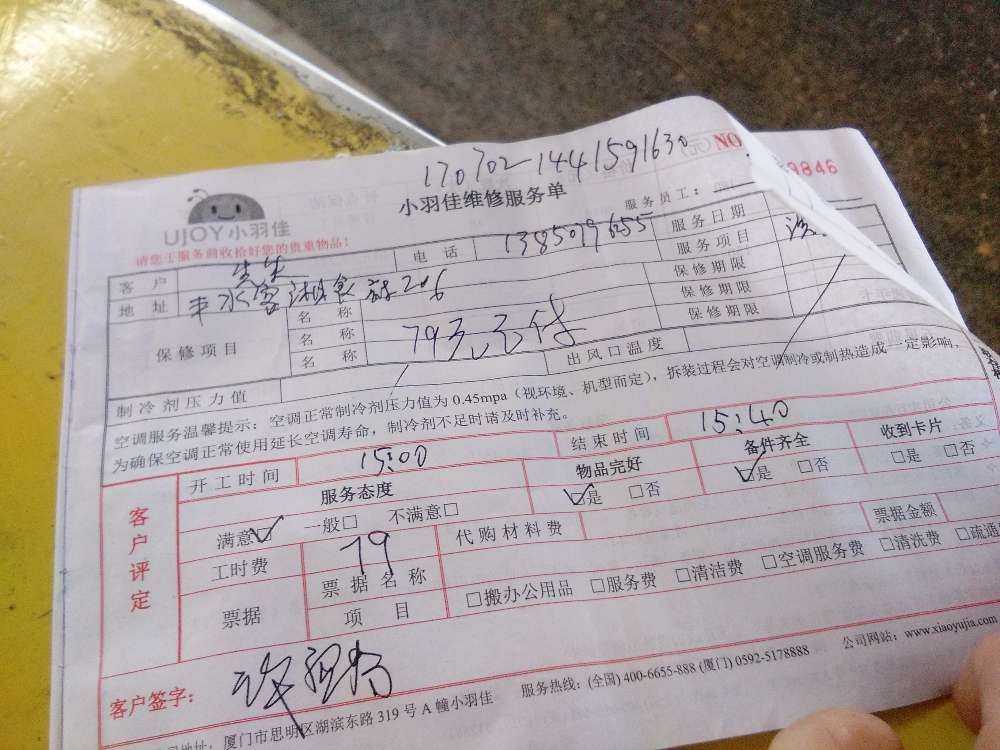 170702-1441591630
NO
9846
小羽佳维修服务单
UJOY小羽佳
服务员工：
请您于服务前收拾好您的贵重物品！
客 户
电 话
服务日期
地 址
206
服务项目
保修项目
名 称
保修期限
名 称
79元
保修期限
名 称
保修期限
制冷剂压力值
出风口温度
空调服务温馨提示：空调正常制冷剂压力值为 0.45mpa（视环境、机型而定），拆装过程会对空调制冷或制热造成一定影响，
为确保空调正常使用延长空调寿命，制冷剂不足时请及时补充。
客户评定
开工时间
15:00
结束时间
15:40
服务态度
物品完好
备件齐全
收到卡片
满意☑ 一般□ 不满意□
☑是 □否
☑是 □否
□是 □否
工时费
79
代购材料费
票据金额
票据
票据名称
项 目
□搬办公用品 □服务费 □清洁费 □空调服务费 □清洗费 □疏通
客户签字：
地址：厦门市思明区湖滨东路 319 号 A 幢小羽佳
服务热线：(全国) 400-6655-888 (厦门) 0592-5178888
公司网站：www.xiaoyujia.com